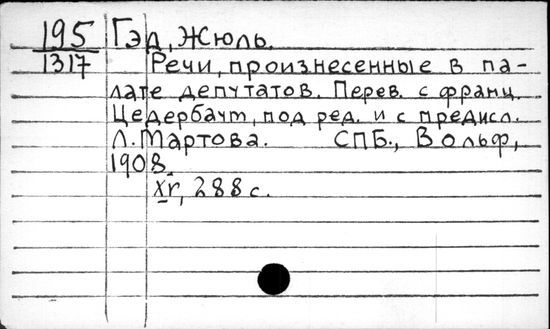 195 Гэд, Жюль.
1317 Речи, произнесенные в па-
лате депутатов. Перев. с франц.
Цедербаум, под ред. и с предисл.
Л. Мартова. СПБ., Вольф,
1908.
XV, 288 с.